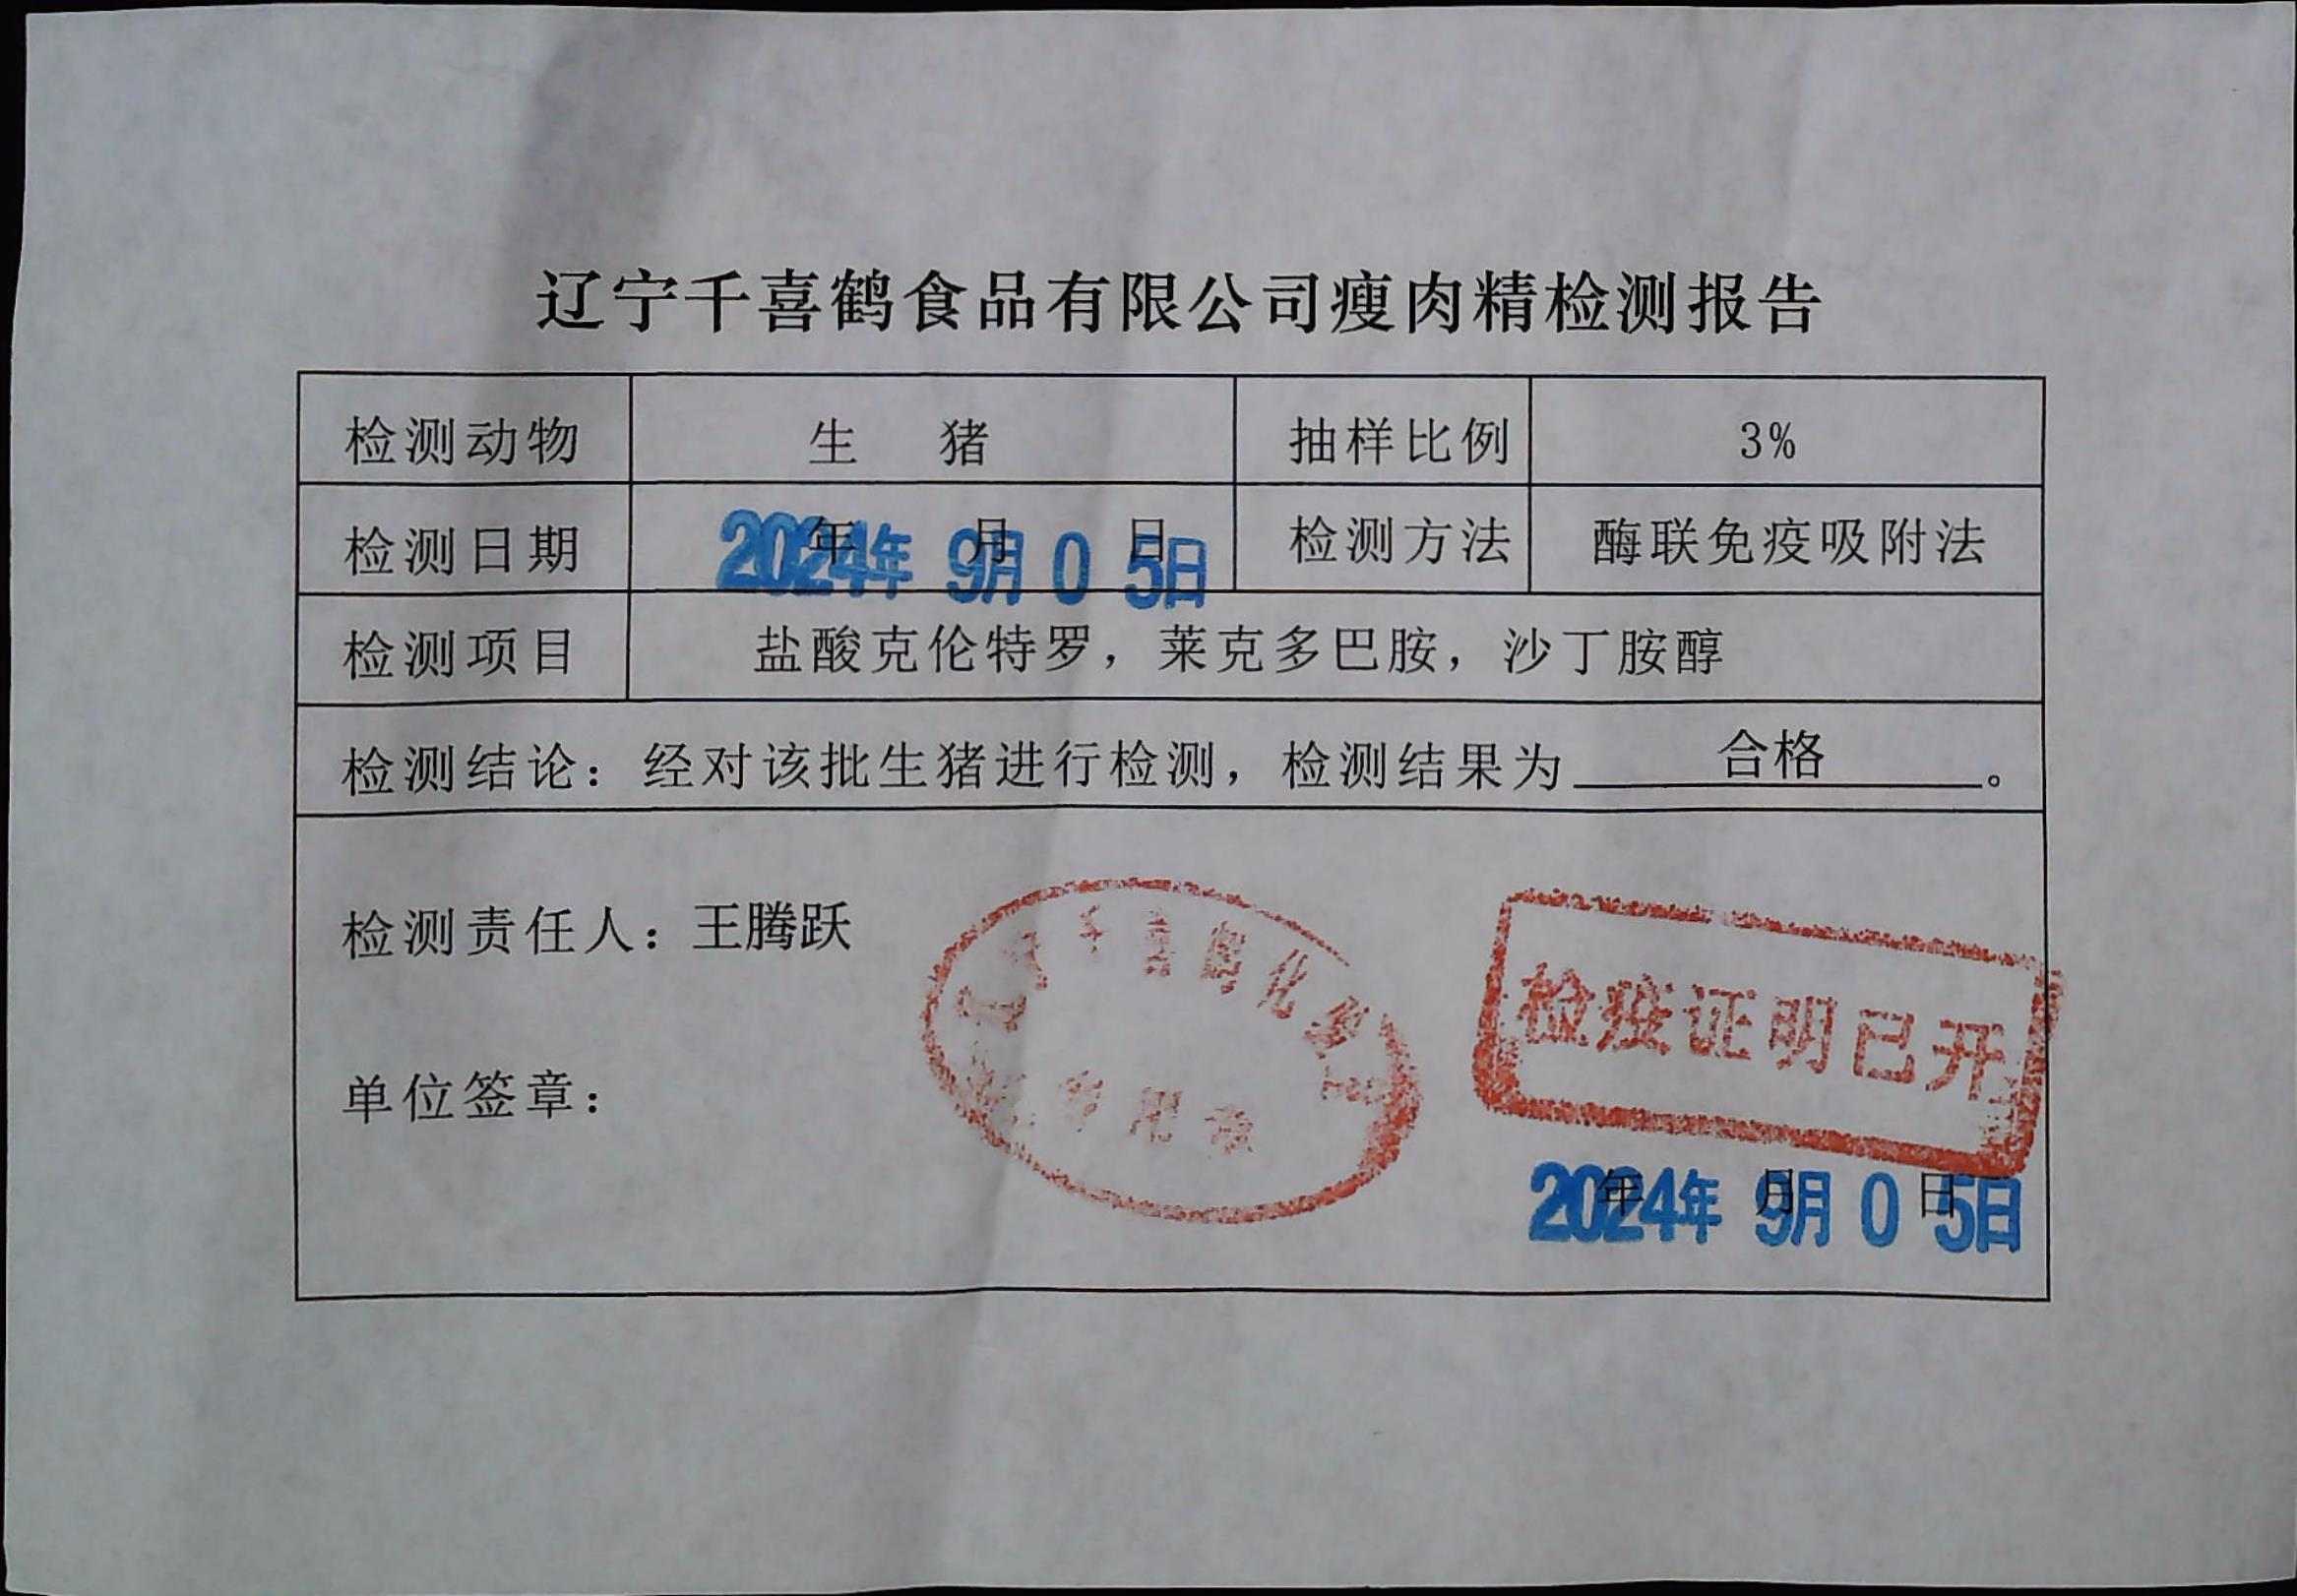 辽宁千喜鹤食品有限公司瘦肉精检测报告
检测动物 生 猪 抽样比例 3%
检测日期 年 月 日 2024年 9月 0 5日 检测方法 酶联免疫吸附法
检测项目 盐酸克伦特罗，莱克多巴胺，沙丁胺醇
检测结论：经对该批生猪进行检测，检测结果为 合格 。
检测责任人：王腾跃
千喜鹤化
专用章
检疫证明已开
单位签章：
年 月 日 2024年 9月 0 5日